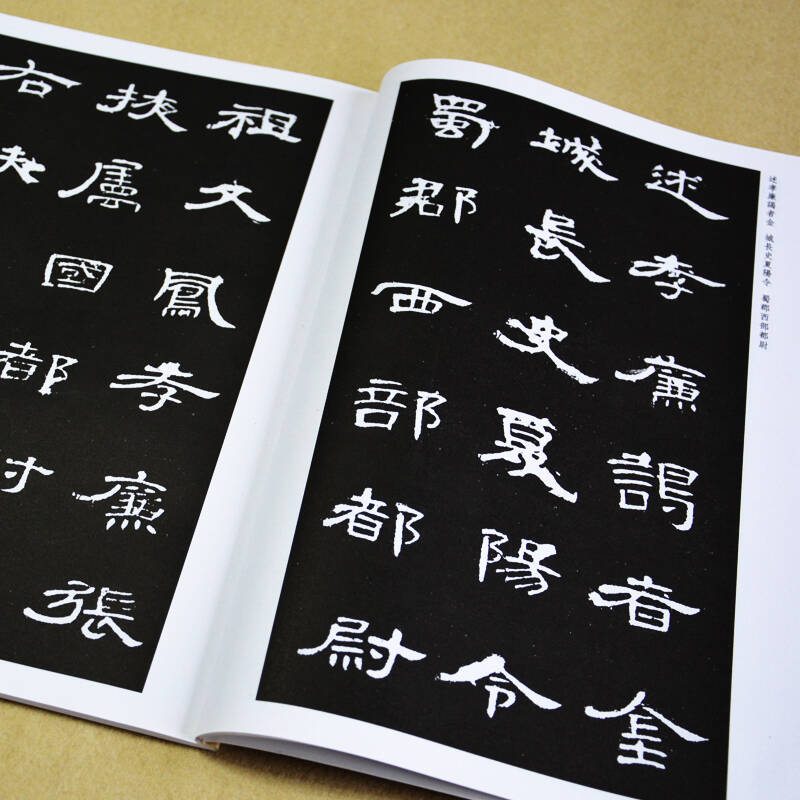 述孝廉謁者金 城長史夏陽令 蜀郡西部都尉
述孝廉謁者金
城長史夏陽令
蜀郡西部都尉
祖父鳳孝廉張
掖屬國都
右